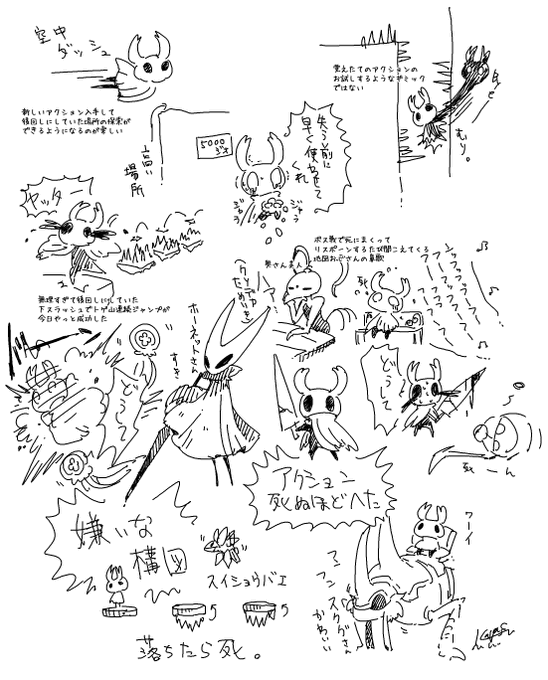 空中
ダッシュ
新しいアクション入手して
後回しにしていた場所の探索が
できるようになるのが楽しい
覚えたてのアクションの
お試しするようなギミック
ではない
むり。
高い
場所
5000
ジオ
失う前に
早く使わせて
くれ
ジャラ
ヤッター!
無理すぎて後回しにしていた
下スラッシュでトゲ山連続ジャンプが
今日やっと成功した
ボス戦で死にまくって
リスポーンするたび聞こえてくる
地図おじさんの鼻歌
奥さんまん
フンフフフーン
ホーネットさん
すき
どうして
どうして
死ーん
アクション
死ぬほどへた
嫌いな
構図
スイショウバエ
落ちたら死。
ワーイ
アフンスタグさん
かわいい